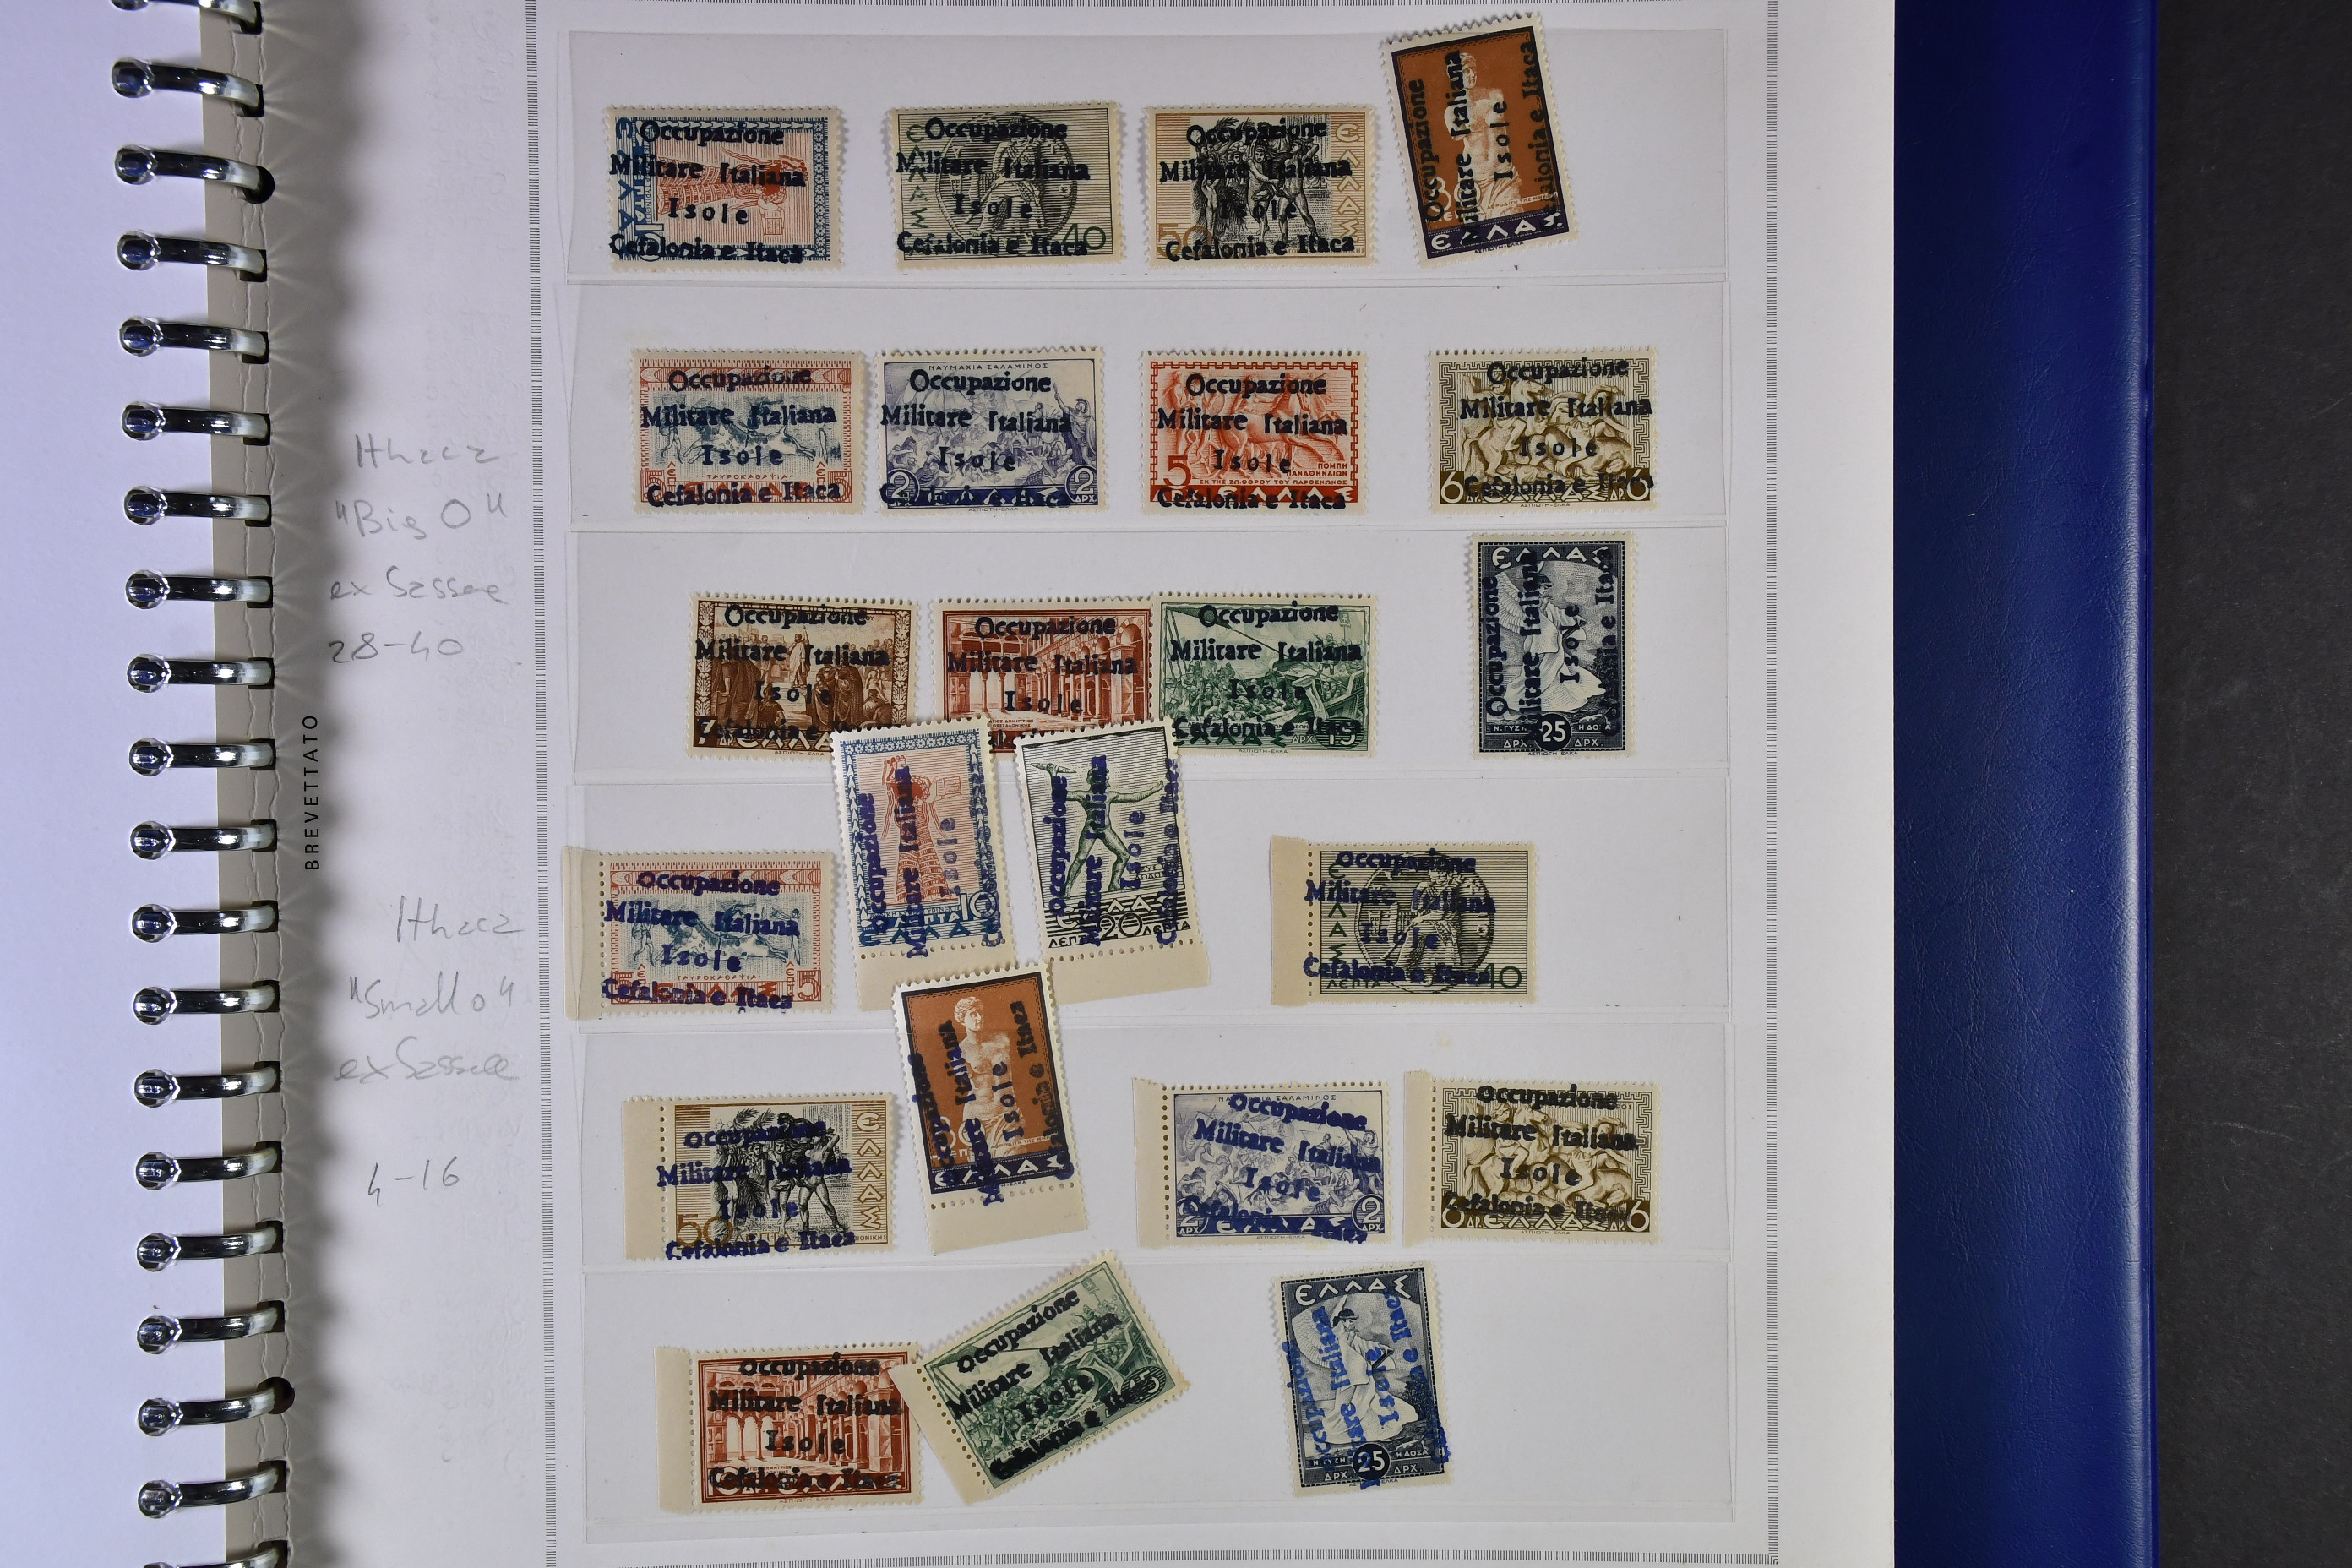 Occupazione
Militare Italiana
Isole
Cefalonia e Itaca
Occupazione
Militare Italiana
Isole
Cefalonia e Itaca
40
Occupazione
Militare Italiana
Isole
Cefalonia e Itaca
50
ΕΛΛΑΣ
Occupazione
Militare Italiana
Isole
Cefalonia e Itaca
ΕΛΛΑΣ
Ithaca
"Big O"
28-40
Occupazione
Militare Italiana
Isole
Cefalonia e Itaca
ΝΑΥΜΑΧΙΑ ΣΑΛΑΜΙΝΟΣ
Occupazione
Militare Italiana
Isole
Cefalonia e Itaca
2 2
Occupazione
Militare Italiana
Isole
5
ΠΟΜΠΗ
ΠΑΝΑΘΗΝΑΙΩΝ
ΕΚ ΤΗΣ ΖΩΦΟΡΟΥ ΤΟΥ ΠΑΡΘΕΝΩΝΟΣ
Cefalonia e Itaca
Occupazione
Militare Italiana
Isole
Cefalonia e Itaca
6 6
BREVETTATO
Occupazione
Militare Italiana
Isole
Cefalonia e
Occupazione
Militare Italiana
Isole
Occupazione
Militare Italiana
Isole
Cefalonia e Itaca
ΕΛΛΑΣ
Occupazione
Militare Italiana
Isole
Cefalonia e Itaca
25
ΔΡΧ. ΔΡΧ.
Ithaca
"Small o"
4-16
Occupazione
Militare Italiana
Isole
Cefalonia e Itaca
ΤΑΥΡΟΚΑΘΑΨΙΑ
5
Occupazione
Militare Italiana
Isole
10
ΕΛΛΑΣ
Occupazione
Militare Italiana
Isole
Cefalonia e Itaca
20
ΛΕΠΤΑ
Occupazione
Militare Italiana
Isole
Cefalonia e Itaca
40
ΛΕΠΤΑ
Occupazione
Militare Italiana
Isole
Cefalonia e Itaca
50
ΕΛΛΑΣ
Occupazione
Militare Italiana
Isole
Cefalonia e Itaca
ΕΛΛΑΣ
Occupazione
Militare Italiana
Isole
Cefalonia e Itaca
2 2
ΔΡΧ ΔΡΧ
Occupazione
Militare Italiana
Isole
Cefalonia e Itaca
6 ΕΛΛΑΣ 6
Occupazione
Militare Italiana
Isole
Cefalonia e Itaca
Occupazione
Militare Italiana
Isole
Cefalonia e Itaca
ΕΛΛΑΣ
Occupazione
Militare Italiana
Isole
25
ΔΡΧ. ΔΡΧ.